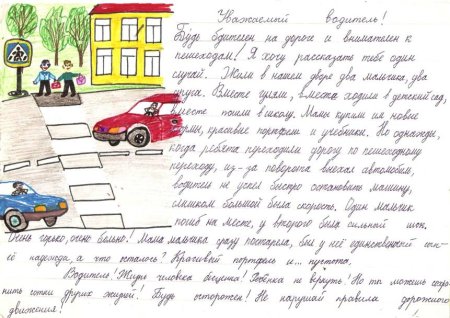 Уважаемый водитель!
Будь бдителен на дороге и внимателен к
пешеходам! Я хочу рассказать тебе один
случай. Жили в нашем дворе два мальчика, два
друга. Вместе гуляли, вместе ходили в детский сад,
вместе пошли в школу. Мамы купили им новые
формы, красивые портфели и учебники. Но однажды,
когда ребята переходили дорогу по пешеходному
переходу, из-за поворота выехал автомобиль,
водитель не успел быстро остановить машину,
слишком большой была скорость. Один мальчик
погиб на месте, у второго был сильный шок.
Очень горько, очень больно! Мама мальчика сразу постарела, был у неё единственный сын-
её надежда, а что осталось? Красивый портфель и... пустота.
Водитель! Жизнь человека бесценна! Ребёнка не вернуть! Но ты можешь сохра-
нить сотни других жизней! Будь осторожен! Не нарушай правила дорожного
движения!